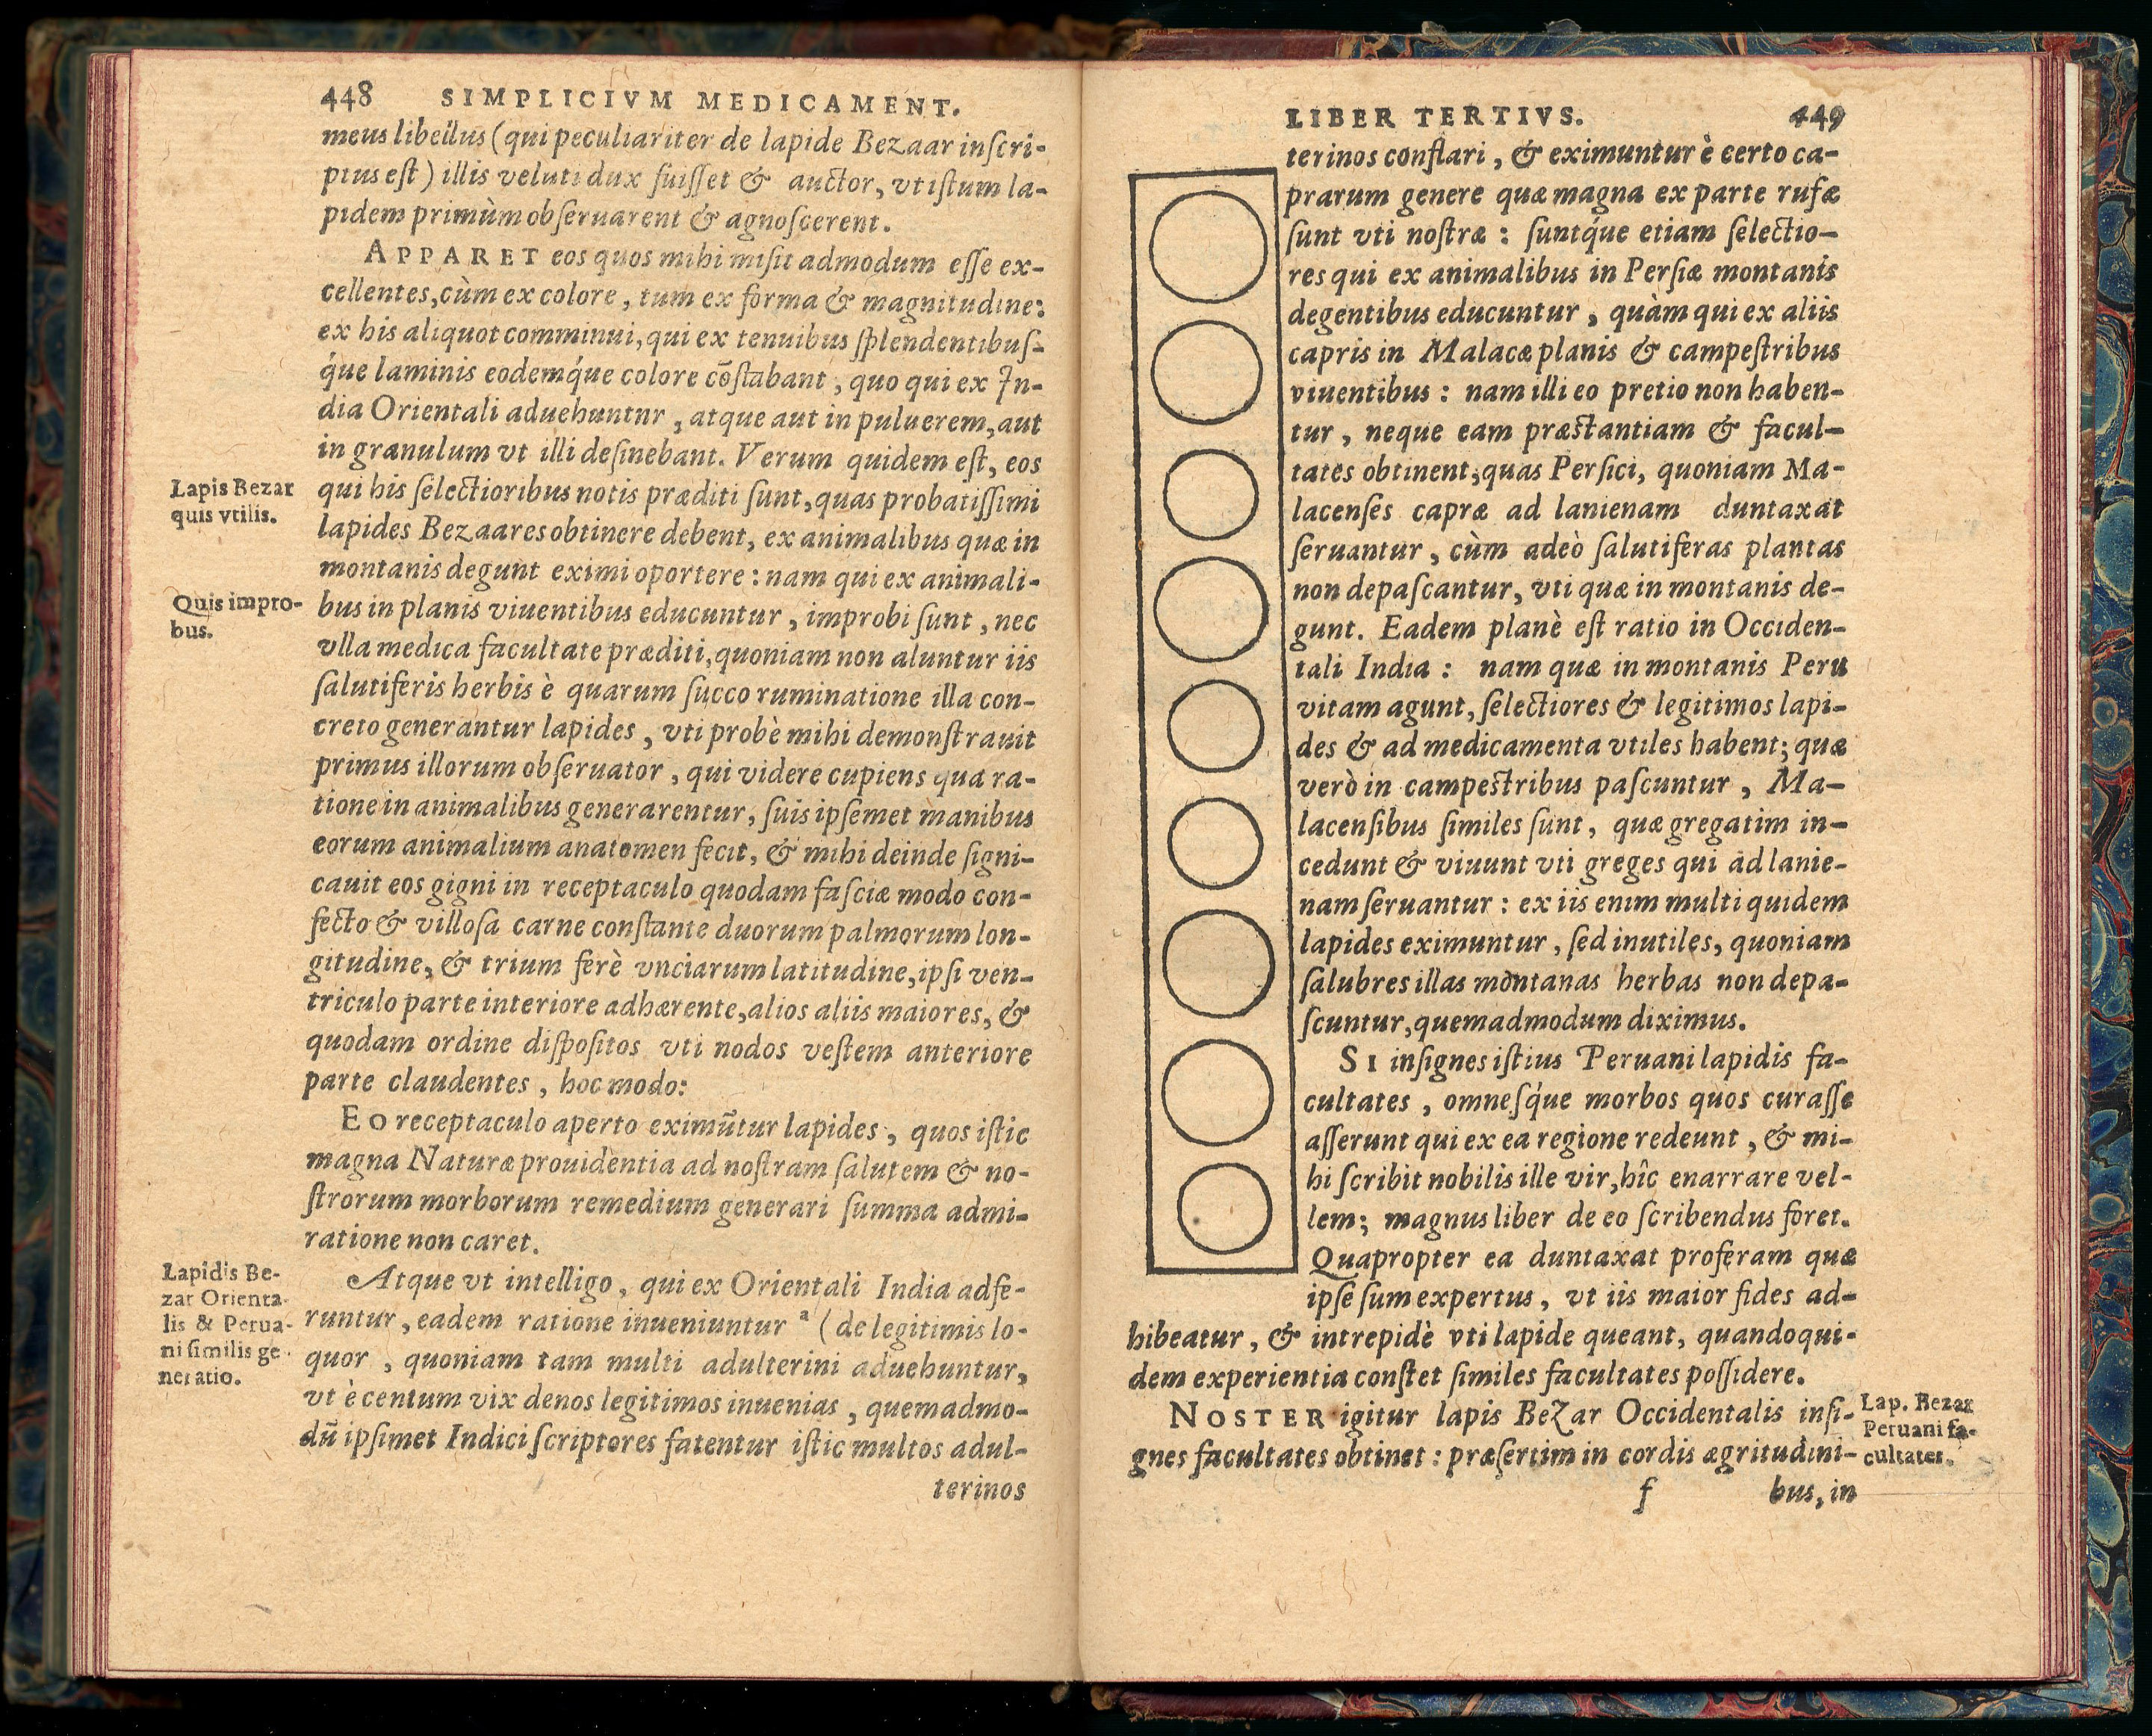 448 SIMPLICIVM MEDICAMENT.
meus libellus (qui peculiariter de lapide Bezaar inſcri-
ptus eſt) illis veluti dux fuiſſet & auctor, vt iſtum la-
pidem primùm obſeruarent & agnoſcerent.
APPARET eos quos mihi miſit admodum eſſe ex-
cellentes, cùm ex colore, tum ex forma & magnitudine:
ex his aliquot comminui, qui ex tenuibus ſplendentibuſ-
q́ue laminis eodemq́ue colore cōſtabant, quo qui ex In-
dia Orientali aduehuntnr, atque aut in puluerem, aut
in granulum vt illi deſinebant. Verum quidem eſt, eos
Lapis Bezar
quis vtilis.
qui his ſelectioribus notis præditi ſunt, quas probatiſſimi
lapides Bezaares obtinere debent, ex animalibus quæ in
montanis degunt eximi oportere: nam qui ex animali-
Quis impro-
bus.
bus in planis viuentibus educuntur, improbi ſunt, nec
vlla medica facultate præditi, quoniam non aluntur iis
ſalutiferis herbis è quarum ſucco ruminatione illa con-
creto generantur lapides, vti probè mihi demonſtrauit
primus illorum obſeruator, qui videre cupiens qua ra-
tione in animalibus generarentur, ſuis ipſemet manibus
eorum animalium anatomen fecit, & mihi deinde ſigni-
cauit eos gigni in receptaculo quodam faſciæ modo con-
fecto & villoſa carne conſtante duorum palmorum lon-
gitudine, & trium ferè vnciarum latitudine, ipſi ven-
triculo parte interiore adhærente, alios aliis maiores, &
quodam ordine diſpoſitos vti nodos veſtem anteriore
parte claudentes, hoc modo:
EO receptaculo aperto eximūtur lapides, quos iſtic
magna Naturæ prouidentia ad noſtram ſalutem & no-
ſtrorum morborum remedium generari ſumma admi-
ratione non caret.
Lapidis Be-
zar Orienta-
lis & Perua-
ni ſimilis ge-
neratio.
Atque vt intelligo, qui ex Orientali India adfe-
runtur, eadem ratione inueniuntur ª (de legitimis lo-
quor, quoniam tam multi adulterini aduehuntur,
vt è centum vix denos legitimos inuenias, quemadmo-
dū ipſimet Indici ſcriptores fatentur iſtic multos adul-
terinos
LIBER TERTIVS. 449
terinos conflari, & eximuntur è certo ca-
prarum genere quæ magna ex parte rufæ
ſunt vti noſtræ: ſuntq́ue etiam ſelectio-
res qui ex animalibus in Perſiæ montanis
degentibus educuntur, quàm qui ex aliis
capris in Malacæ planis & campeſtribus
viuentibus: nam illi eo pretio non haben-
tur, neque eam præſtantiam & facul-
tates obtinent, quas Perſici, quoniam Ma-
lacenſes capræ ad lanienam duntaxat
ſeruantur, cùm adeò ſalutiferas plantas
non depaſcantur, vti quæ in montanis de-
gunt. Eadem planè eſt ratio in Occiden-
tali India: nam quæ in montanis Peru
vitam agunt, ſelectiores & legitimos lapi-
des & ad medicamenta vtiles habent; quæ
verò in campeſtribus paſcuntur, Ma-
lacenſibus ſimiles ſunt, quæ gregatim in-
cedunt & viuunt vti greges qui ad lanie-
nam ſeruantur: ex iis enim multi quidem
lapides eximuntur, ſed inutiles, quoniam
ſalubres illas montanas herbas non depa-
ſcuntur, quemadmodum diximus.
SI inſignes iſtius Peruani lapidis fa-
cultates, omneſq́ue morbos quos curaſſe
aſſerunt qui ex ea regione redeunt, & mi-
hi ſcribit nobilis ille vir, hîc enarrare vel-
lem; magnus liber de eo ſcribendus foret.
Quapropter ea duntaxat proferam quæ
ipſe ſum expertus, vt iis maior fides ad-
hibeatur, & intrepidè vti lapide queant, quandoqui-
dem experientia conſtet ſimiles facultates poſſidere.
NOSTER igitur lapis Bezar Occidentalis inſi-
gnes facultates obtinet: præſertim in cordis ægritudini-
Lap. Bezar
Peruani fa-
cultates.
f bus, in